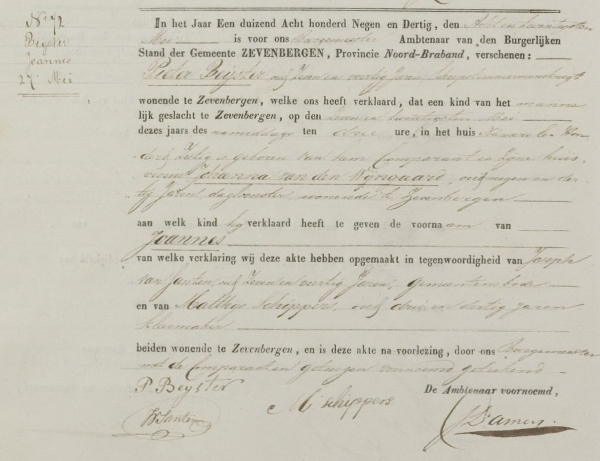 No 72
Beyster
Joannes
27 Mei
In het Jaar Een duizend Acht honderd Negen en Dertig, den Acht en twintigsten
Mei is voor ons Burgemeester Ambtenaar van den Burgerlijken
Stand der Gemeente ZEVENBERGEN, Provincie Noord-Braband, verschenen:
Pieter Beyster oud en veertig Jaren
wonende te Zevenbergen, welke ons heeft verklaard, dat een kind van het manne
lijk geslacht te Zevenbergen, op den Zeven en twintigsten Mei
dezes jaars des namiddags ten drie ure, in het huis Nummer Een Hon
derd Zestig is geboren van hem Comparant en zyne huis
vrouw Johanna van den Wijngaard, oud negen en der
tig Jaren dagloonster wonende te Zevenbergen
aan welk kind hy verklaard heeft te geven de voorna am van
Joannes
van welke verklaring wij deze akte hebben opgemaakt in tegenwoordigheid van Joseph
van Santen, oud Zeven en veertig Jaren, Gemeentensbode
en van Matthys Schippers, oud drie en dertig Jaren
Kleermaker
beiden wonende te Zevenbergen, en is deze akte na voorlezing, door ons Burgemeester
met de Comparant en getuigen voornoemd geteekend
P Beyster
De Ambtenaar voornoemd,
M schippers
V Santen
Damen